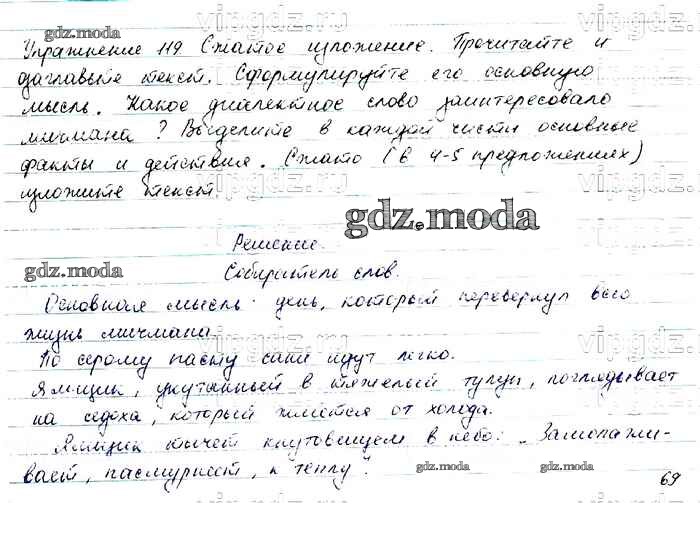 vipgdz.ru vipgdz.ru
gdz.moda
Упражнение 119 Сжатое изложение. Прочитайте и
озаглавьте текст. Сформулируйте его основную
мысль. Какое диалектное слово заинтересовало
мичмана? Выделите в каждой части основные
факты и действия. Сжато (в 4-5 предложениях)
изложите текст.
gdz.moda
Решение.
gdz.moda
Собиратель слов.
Основная мысль: день, который перевернул всю
жизнь мичмана.
По серому насту сани идут легко.
Ямщик, укутанный в тяжелый тулуп, поглядывает
на седока, который жмётся от холода.
Ямщик тычет кнутовищем в небо: „Замолажи-
вает, пасмурнеет, к теплу".
gdz.moda gdz.moda gdz.moda
69